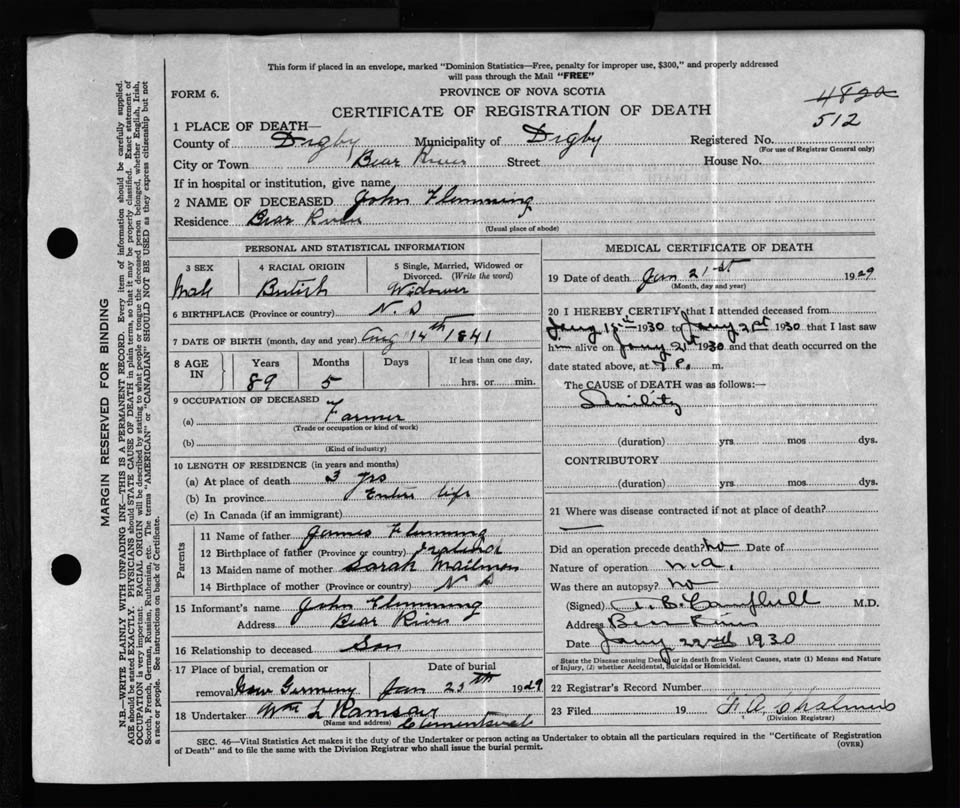 This form if placed in an envelope, marked "Dominion Statistics—Free, penalty for improper use, $300," and properly addressed
will pass through the Mail "FREE"
FORM 6.
PROVINCE OF NOVA SCOTIA
4820
CERTIFICATE OF REGISTRATION OF DEATH
512
1 PLACE OF DEATH—
County of Digby Municipality of Digby Registered No.
(For use of Registrar General only)
City or Town Bear River Street House No.
If in hospital or institution, give name
2 NAME OF DECEASED John Flemming
Residence Bear River
(Usual place of abode)
PERSONAL AND STATISTICAL INFORMATION
3 SEX 4 RACIAL ORIGIN 5 Single, Married, Widowed or
Divorced. (Write the word)
Male British Widower
6 BIRTHPLACE (Province or country) N.S
7 DATE OF BIRTH (month, day and year) Aug 14th 1841
8 AGE IN Years Months Days If less than one day,
89 5 hrs. or min.
9 OCCUPATION OF DECEASED
(a) Farmer
(Trade or occupation or kind of work)
(b)
(Kind of industry)
10 LENGTH OF RESIDENCE (in years and months)
(a) At place of death 3 yrs
(b) In province Entire life
(c) In Canada (if an immigrant)
Parents
11 Name of father James Flemming
12 Birthplace of father (Province or country)
13 Maiden name of mother Sarah Mailman
14 Birthplace of mother (Province or country) N S
15 Informant's name John Flemming
Address Bear River
16 Relationship to deceased Son
17 Place of burial, cremation or Date of burial
removal New Germany Jan 25th 1929
18 Undertaker Wm L Ramsay
(Name and address) Clementsvale
MEDICAL CERTIFICATE OF DEATH
19 Date of death Jan 21st 1929
(Month, day and year)
20 I HEREBY CERTIFY that I attended deceased from
Jany 18th 1930 to Jany 21st 1930 that I last saw
him alive on Jany 21st 1930 and that death occurred on the
date stated above, at 7 P. m.
The CAUSE of DEATH was as follows:—
Senility
(duration) yrs mos dys.
CONTRIBUTORY
(duration) yrs. mos. dys.
21 Where was disease contracted if not at place of death?
—
Did an operation precede death? no Date of
Nature of operation n.a.
Was there an autopsy? no
(Signed) L. B. Campbell M.D.
Address Bear River
Date Jany 22nd 1930
State the Disease causing Death, or in death from Violent Causes, state (1) Means and Nature
of Injury, (2) whether Accidental, Suicidal or Homicidal.
22 Registrar's Record Number
23 Filed 19 Chalmers
(Division Registrar)
SEC. 46—Vital Statistics Act makes it the duty of the Undertaker or person acting as Undertaker to obtain all the particulars required in the "Certificate of Registration
of Death" and to file the same with the Division Registrar who shall issue the burial permit.
(OVER)
MARGIN RESERVED FOR BINDING
N.B.—WRITE PLAINLY WITH UNFADING INK—THIS IS A PERMANENT RECORD. Every item of information should be carefully supplied.
AGE should be stated EXACTLY. PHYSICIANS should STATE CAUSE OF DEATH in plain terms, so that it may be properly classified. Exact statement of
OCCUPATION is very important. RACIAL ORIGIN will be described by stating to what people or tongue the deceased person belonged, whether English, Irish,
Scotch, French, German, Russian, Ruthenian, etc. The terms "AMERICAN" or "CANADIAN" SHOULD NOT BE USED as they express citizenship but not
a race or people. See instructions on back of Certificate.